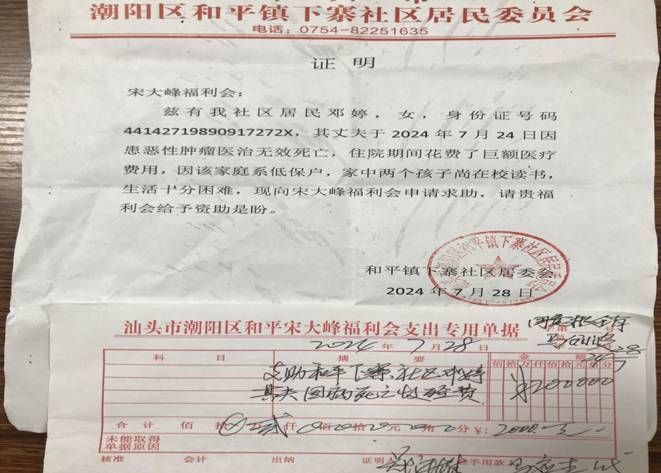 潮阳区和平镇下寨社区居民委员会
电话：0754-82251635
证明
宋大峰福利会：
兹有我社区居民邓婷，女，身份证号码
44142719890917272X，其丈夫于2024年7月24日因
患恶性肿瘤医治无效死亡，住院期间花费了巨额医疗
费用，因该家庭系低保户，家中两个孩子尚在校读书，
生活十分困难，现向宋大峰福利会申请求助，请贵福
利会给予资助是盼。
和平镇下寨社区居委会
2024年7月28日
汕头市潮阳区和平宋大峰福利会支出专用单据
2024年7月28日
科目 摘要 金额
佰拾万仟佰拾元角分
支助和平下寨社区邓婷
其夫因病死亡 经费
¥200000
合计 佰 拾 万 贰 仟 佰 拾 元 角 分 ¥：2000
未能取得
单据原因
核准 会计 出纳 证明人 手用款